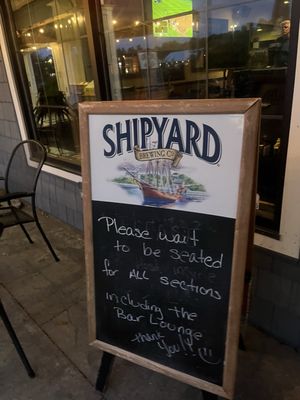 SHIPYARD
BREWING CO
Please wait
to be seated
for ALL sections
including the
Bar Lounge
thank
you!!